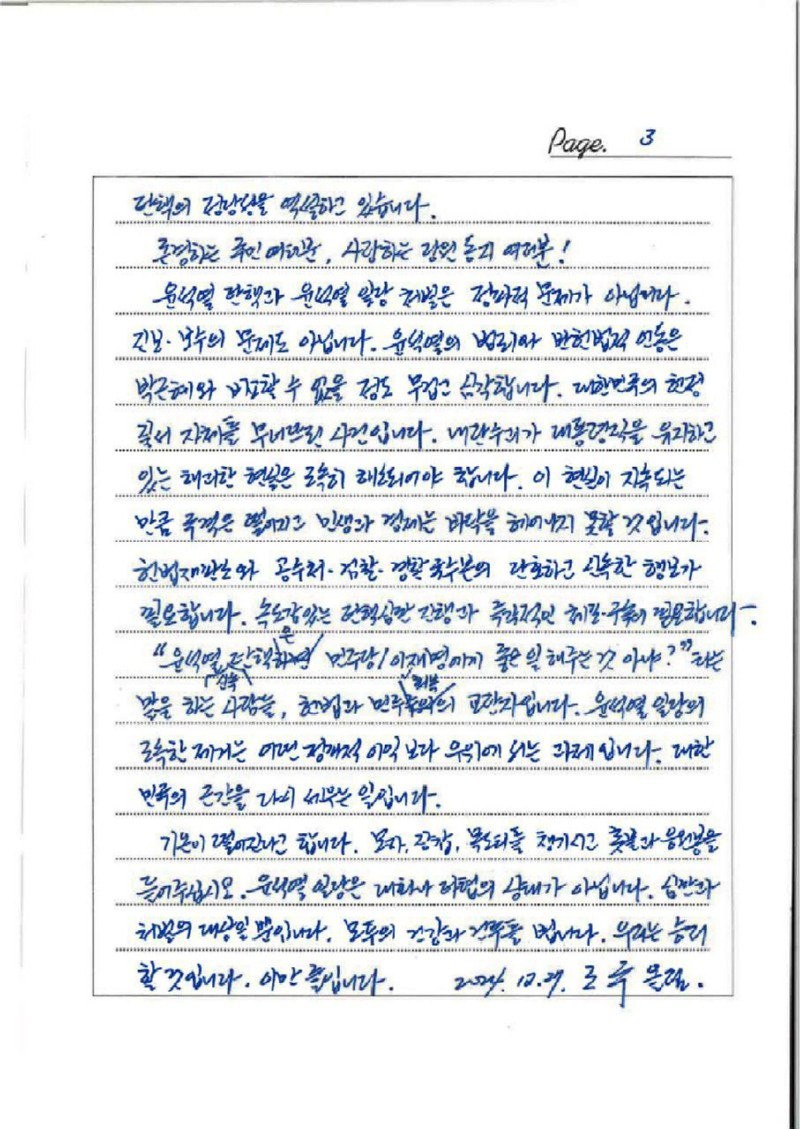 Page. 3
탄핵의 정당성을 역설하고 있습니다.
존경하는 국민 여러분, 사랑하는 당원 동지 여러분!
윤석열 탄핵과 윤석열 일당 처벌은 정파적 문제가 아닙니다.
진보·보수의 문제도 아닙니다. 윤석열의 범죄와 반헌법적 언동은
박근혜와 비교할 수 없을 정도 무겁고 심각합니다. 대한민국의 헌정
질서 자체를 무너뜨린 사건입니다. 내란수괴가 대통령직을 유지하고
있는 해괴한 현실은 조속히 해소되어야 합니다. 이 현실이 지속되는
만큼 국격은 떨어지고 민생과 경제는 바닥을 헤어나지 못할 것입니다.
헌법재판소와 공수처·검찰·경찰 국수본의 단호하고 신속한 행보가
필요합니다. 속도감있는 탄핵심판 진행과 즉각적인 체포·구속이 필요합니다.
"윤석열 신속 탄핵은 민주당/이재명에게 좋은 일 해주는 것 아냐?"라는
말을 하는 사람들, 헌법과 민주 회복의 교란자입니다. 윤석열 일당의
조속한 제거는 어떤 정개적 이익보다 우위에 서는 과제입니다. 대한
민국의 근간을 다시 세우는 일입니다.
기온이 떨어진다고 합니다. 모자, 장갑, 목도리를 챙기시고 촛불과 응원봉을
들어주십시오. 윤석열 일당은 대화나 타협의 상대가 아닙니다. 심판과
처벌의 대상일 뿐입니다. 모두의 건강과 건투를 빕니다. 우리는 승리
할 것입니다. 이만 줄입니다. 2024. 12. 27. 조 국 올림.